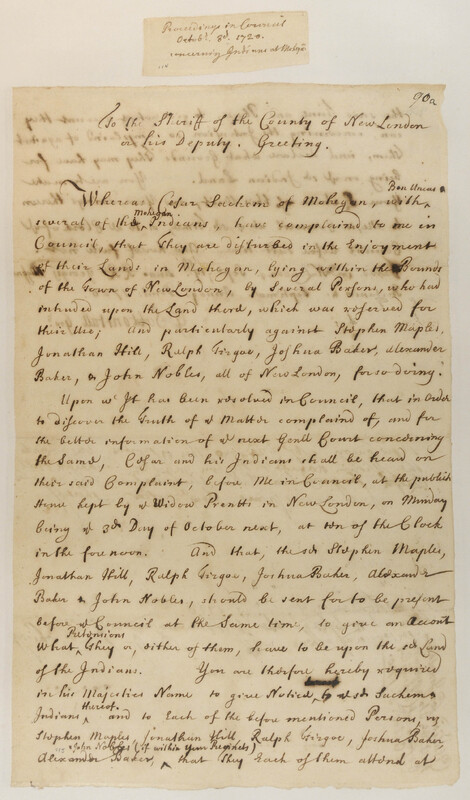 Proceedings in Council
Octobr. 3d. 1720.
concerning Indians at Mohegan
90a
To the Sheriff of the County of New London
or his Deputy. Greeting.
Ben Uncas &
Whereas Cesar Sachem of Mohegan, with
Mohegan
several of the Indians, have complained to me in
Council, that They are disturbed in the Enjoyment
of their Lands in Mohegan, lying within the Bounds
of the Town of New London, by Several Persons, who had
intruded upon the Land there, which was reserved for
their Use; and particularly against Stephen Maples,
Jonathan Hill, Ralph Firgoe, Joshua Baker, Alexander
Baker, & John Nobles, all of New London, for so doing.
Upon wc. It has been resolved in Council, that in order
to discover the Truth of ye Matter complaind of, and for
the better information of ye next Genll Court concerning
the Same, Cesar and his Indians shall be heard on
their said Complaint, before Me in Council, at the publick
House kept by ye Widow Prentts in New London, on Munday
being ye 3d Day of October next, at ten of the Clock
in the fore noon. And that, the sd Stephen Maples,
Jonathan Hill, Ralph Firgoe, Joshua Baker, Alexander
Baker & John Nobles, should be sent for to be present
before ye Council at the Same time, to give an Account
Pretensions
What They or, either of them, have to be upon the sd Land
of the Indians. You are therfore hereby required
in his Majesties Name to give Notice, to ye sd Sachem &
thereof
Indians, and to Each of the before mentioned Persons, viz
Stephen Maples, Jonathan Hill, Ralph Firgoe, Joshua Baker,
& John Nobles (if within Your Precincts)
Alexander Baker, that They Each of them attend at